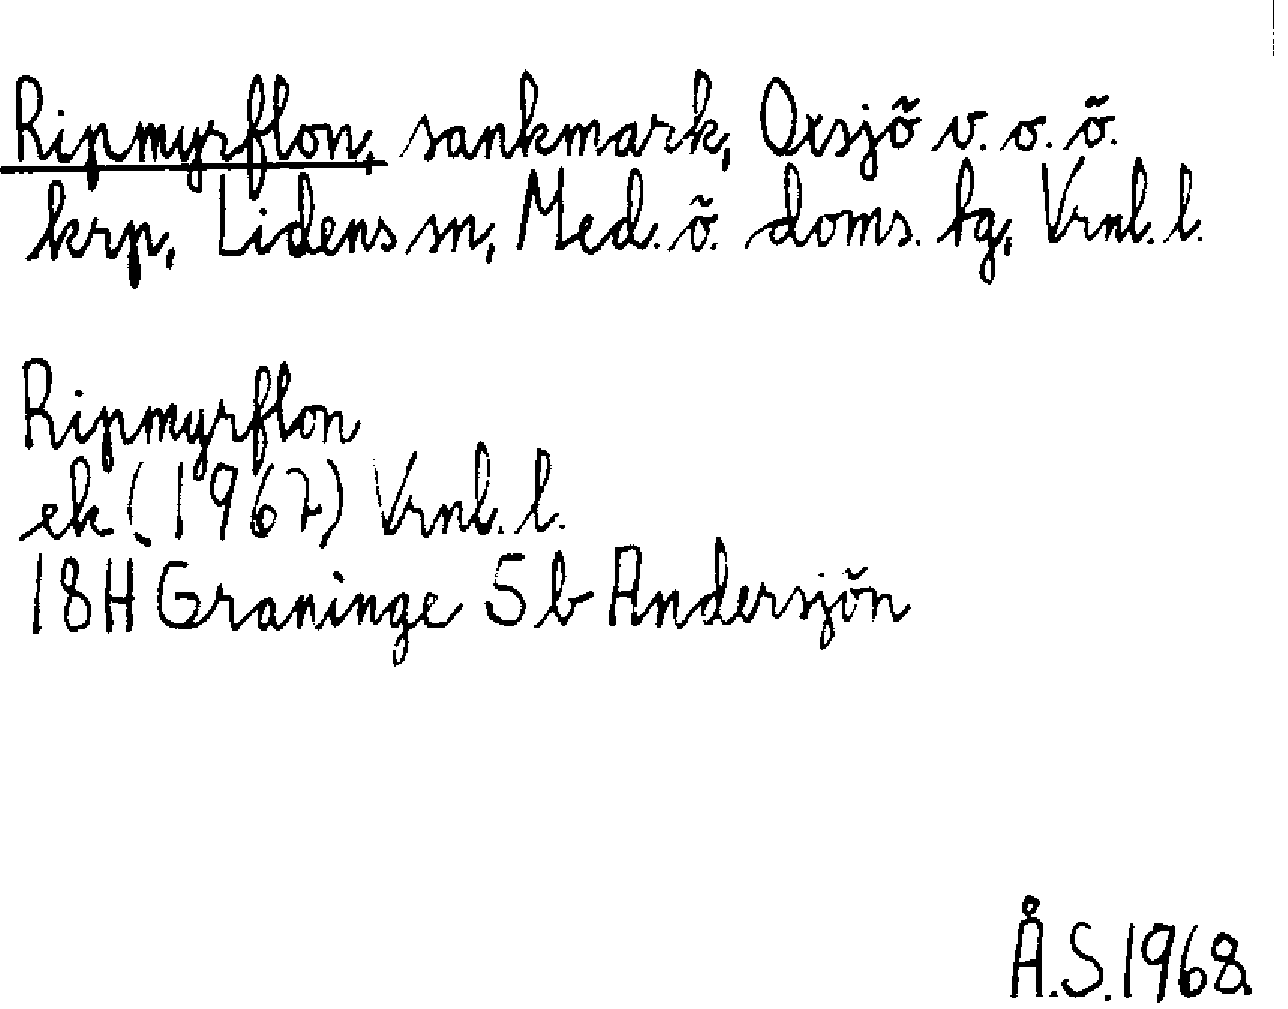 Ripmyrflon, sankmark, Oxsjö v. o. ö.
krp, Lidens sn, Med. ö. doms. tg, Vrnl. l.
Ripmyrflon
ek (1967) Vrnl. l.
18H Graninge 5 b Andersjön
Å.S.1968.